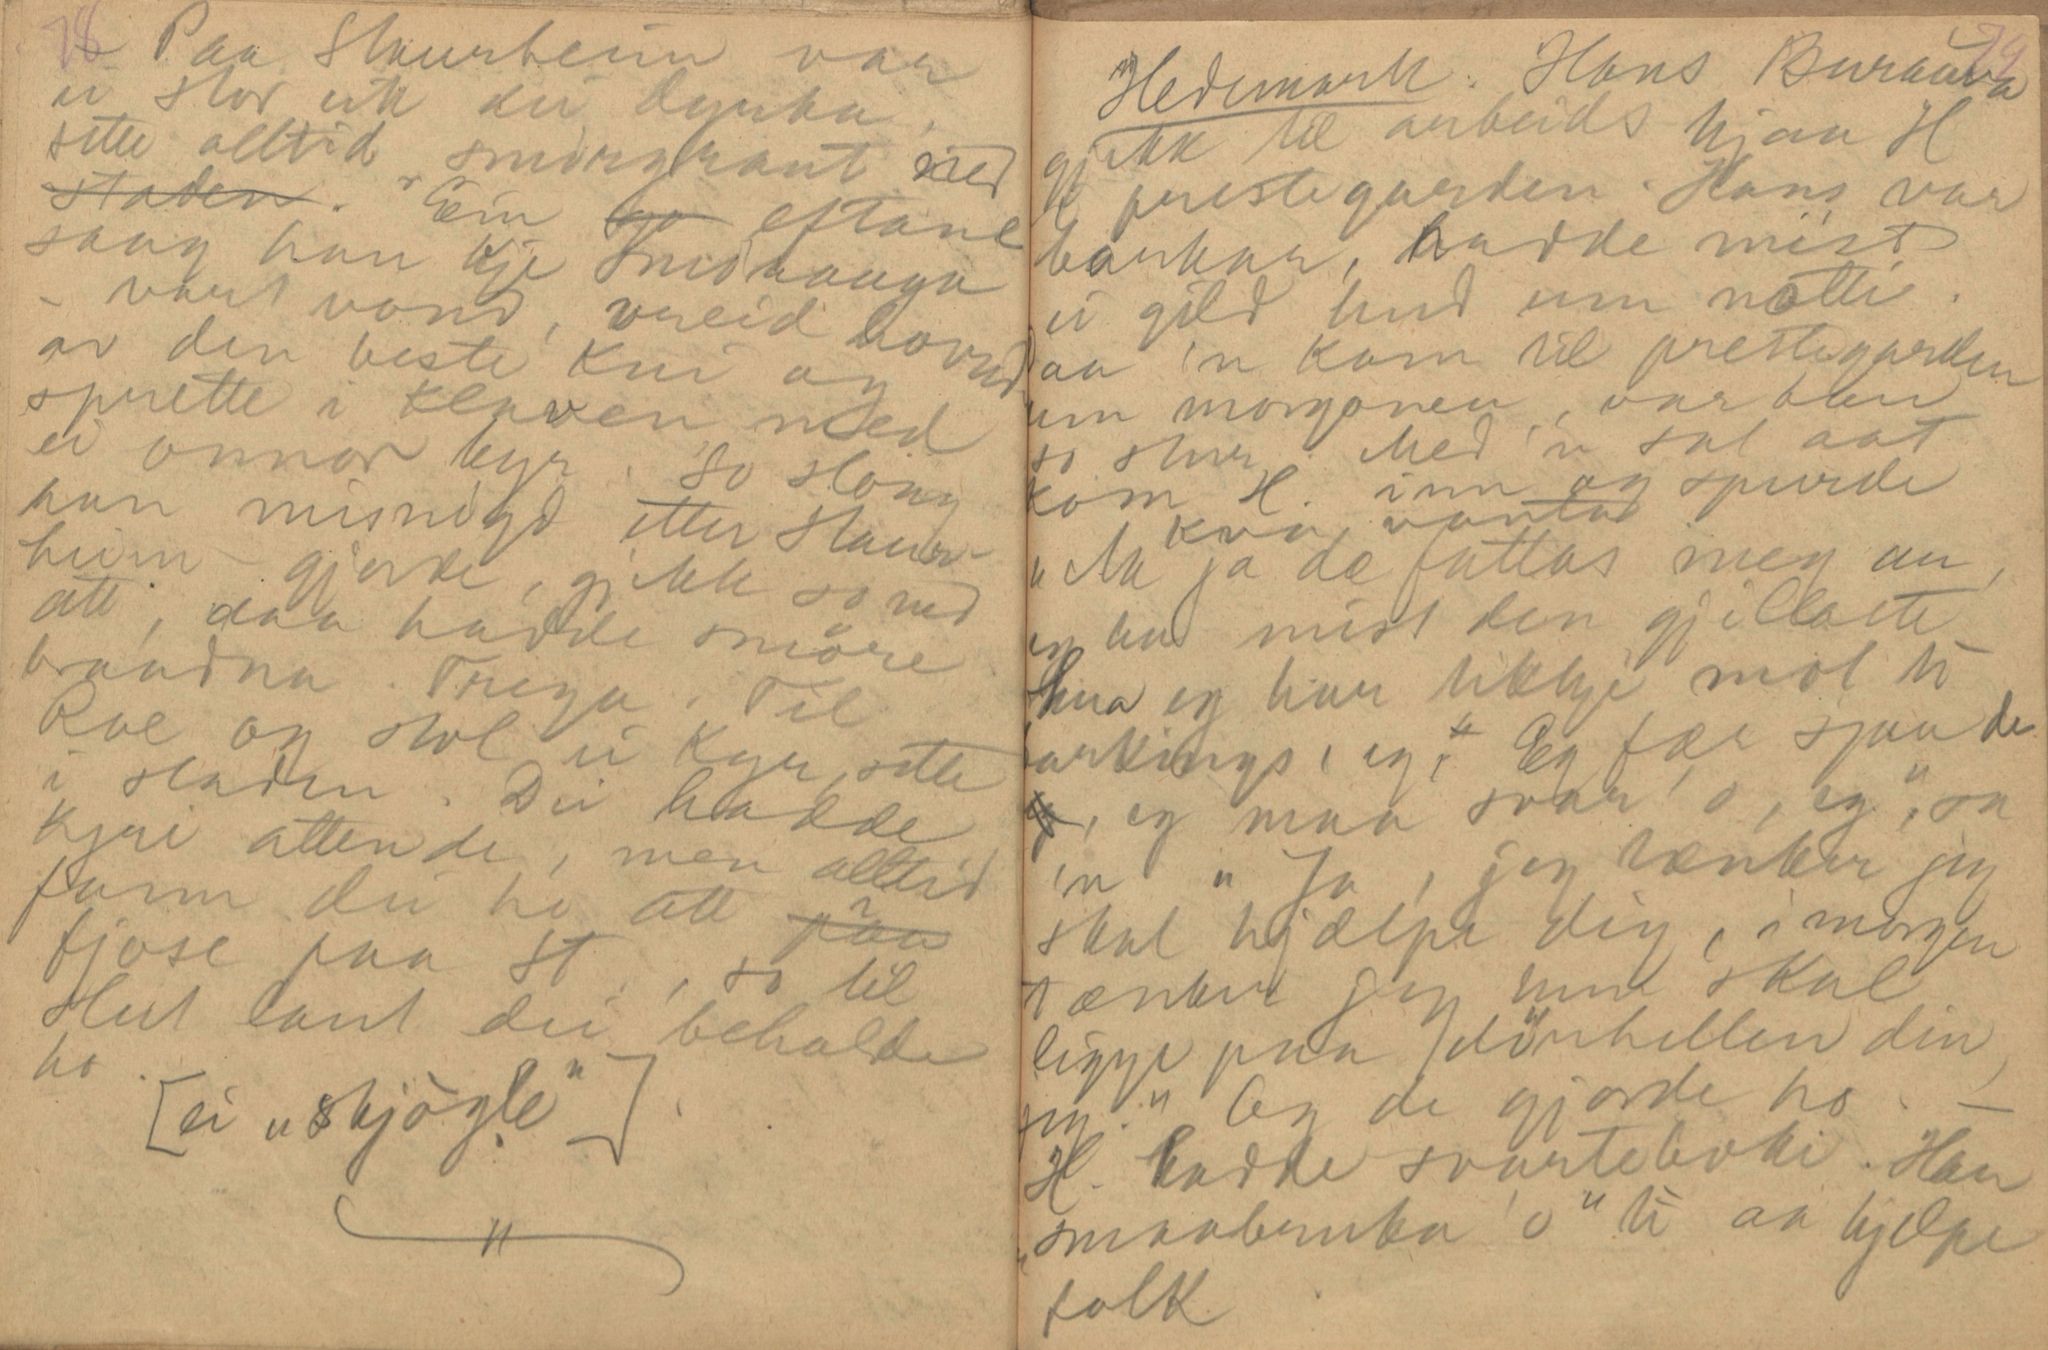 78
Paa Staurheim var
ei stor eik dei dyrka,
sette alltid smörgraut ned
staden. Ein eftane
saag han kje Smörauga
- vart vond, vreid hovud
av den beste kui og
sprette i klaven med
ei onnor kyr. So slong
han misnögd etter Staur-
heim - gjorde, gjekk so ned
att, daa hadde smöre
braadna. Trega. Til
Röl og stol ei kyr, sette
i staden. Dei hadde
kyri attende, men alltid
funn dei ho att paa
fjose paa St., so til
slut laut dei behalde
ho.
[ei "skjögle"]
79
Hedemark. Hans Buraava
gjekk til arbeids hjaa H
prestegarden. Hans var
barkar, hadde mist
ei gild hud um notti.
Daa 'n kom til prestegarden
um morgonen, var han
so stur. Med 'n sat aat
kom H. inn og spurde
kva vanta
"Aa ja dæ fattas meg au,
eg ha mist den gjillaste
hua eg har tikkje mot ti
barkings, eg." Eg fær sjaa de
, eg maa svar 'o, eg", sa
'n "Ja, jeg tænker jeg
skal hjælpe dig, i morgen
tænker jeg hun skal
ligge paa dörhellen din,
jeg." Og de gjorde ho. -
H. hadde svarteboki. Han
smaabruka 'o" ti aa hjelpe
folk.